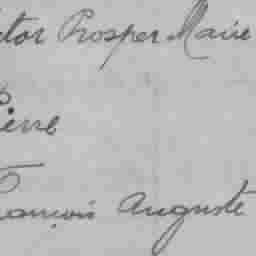 ctor Prosper Marie
Pierre
François Auguste